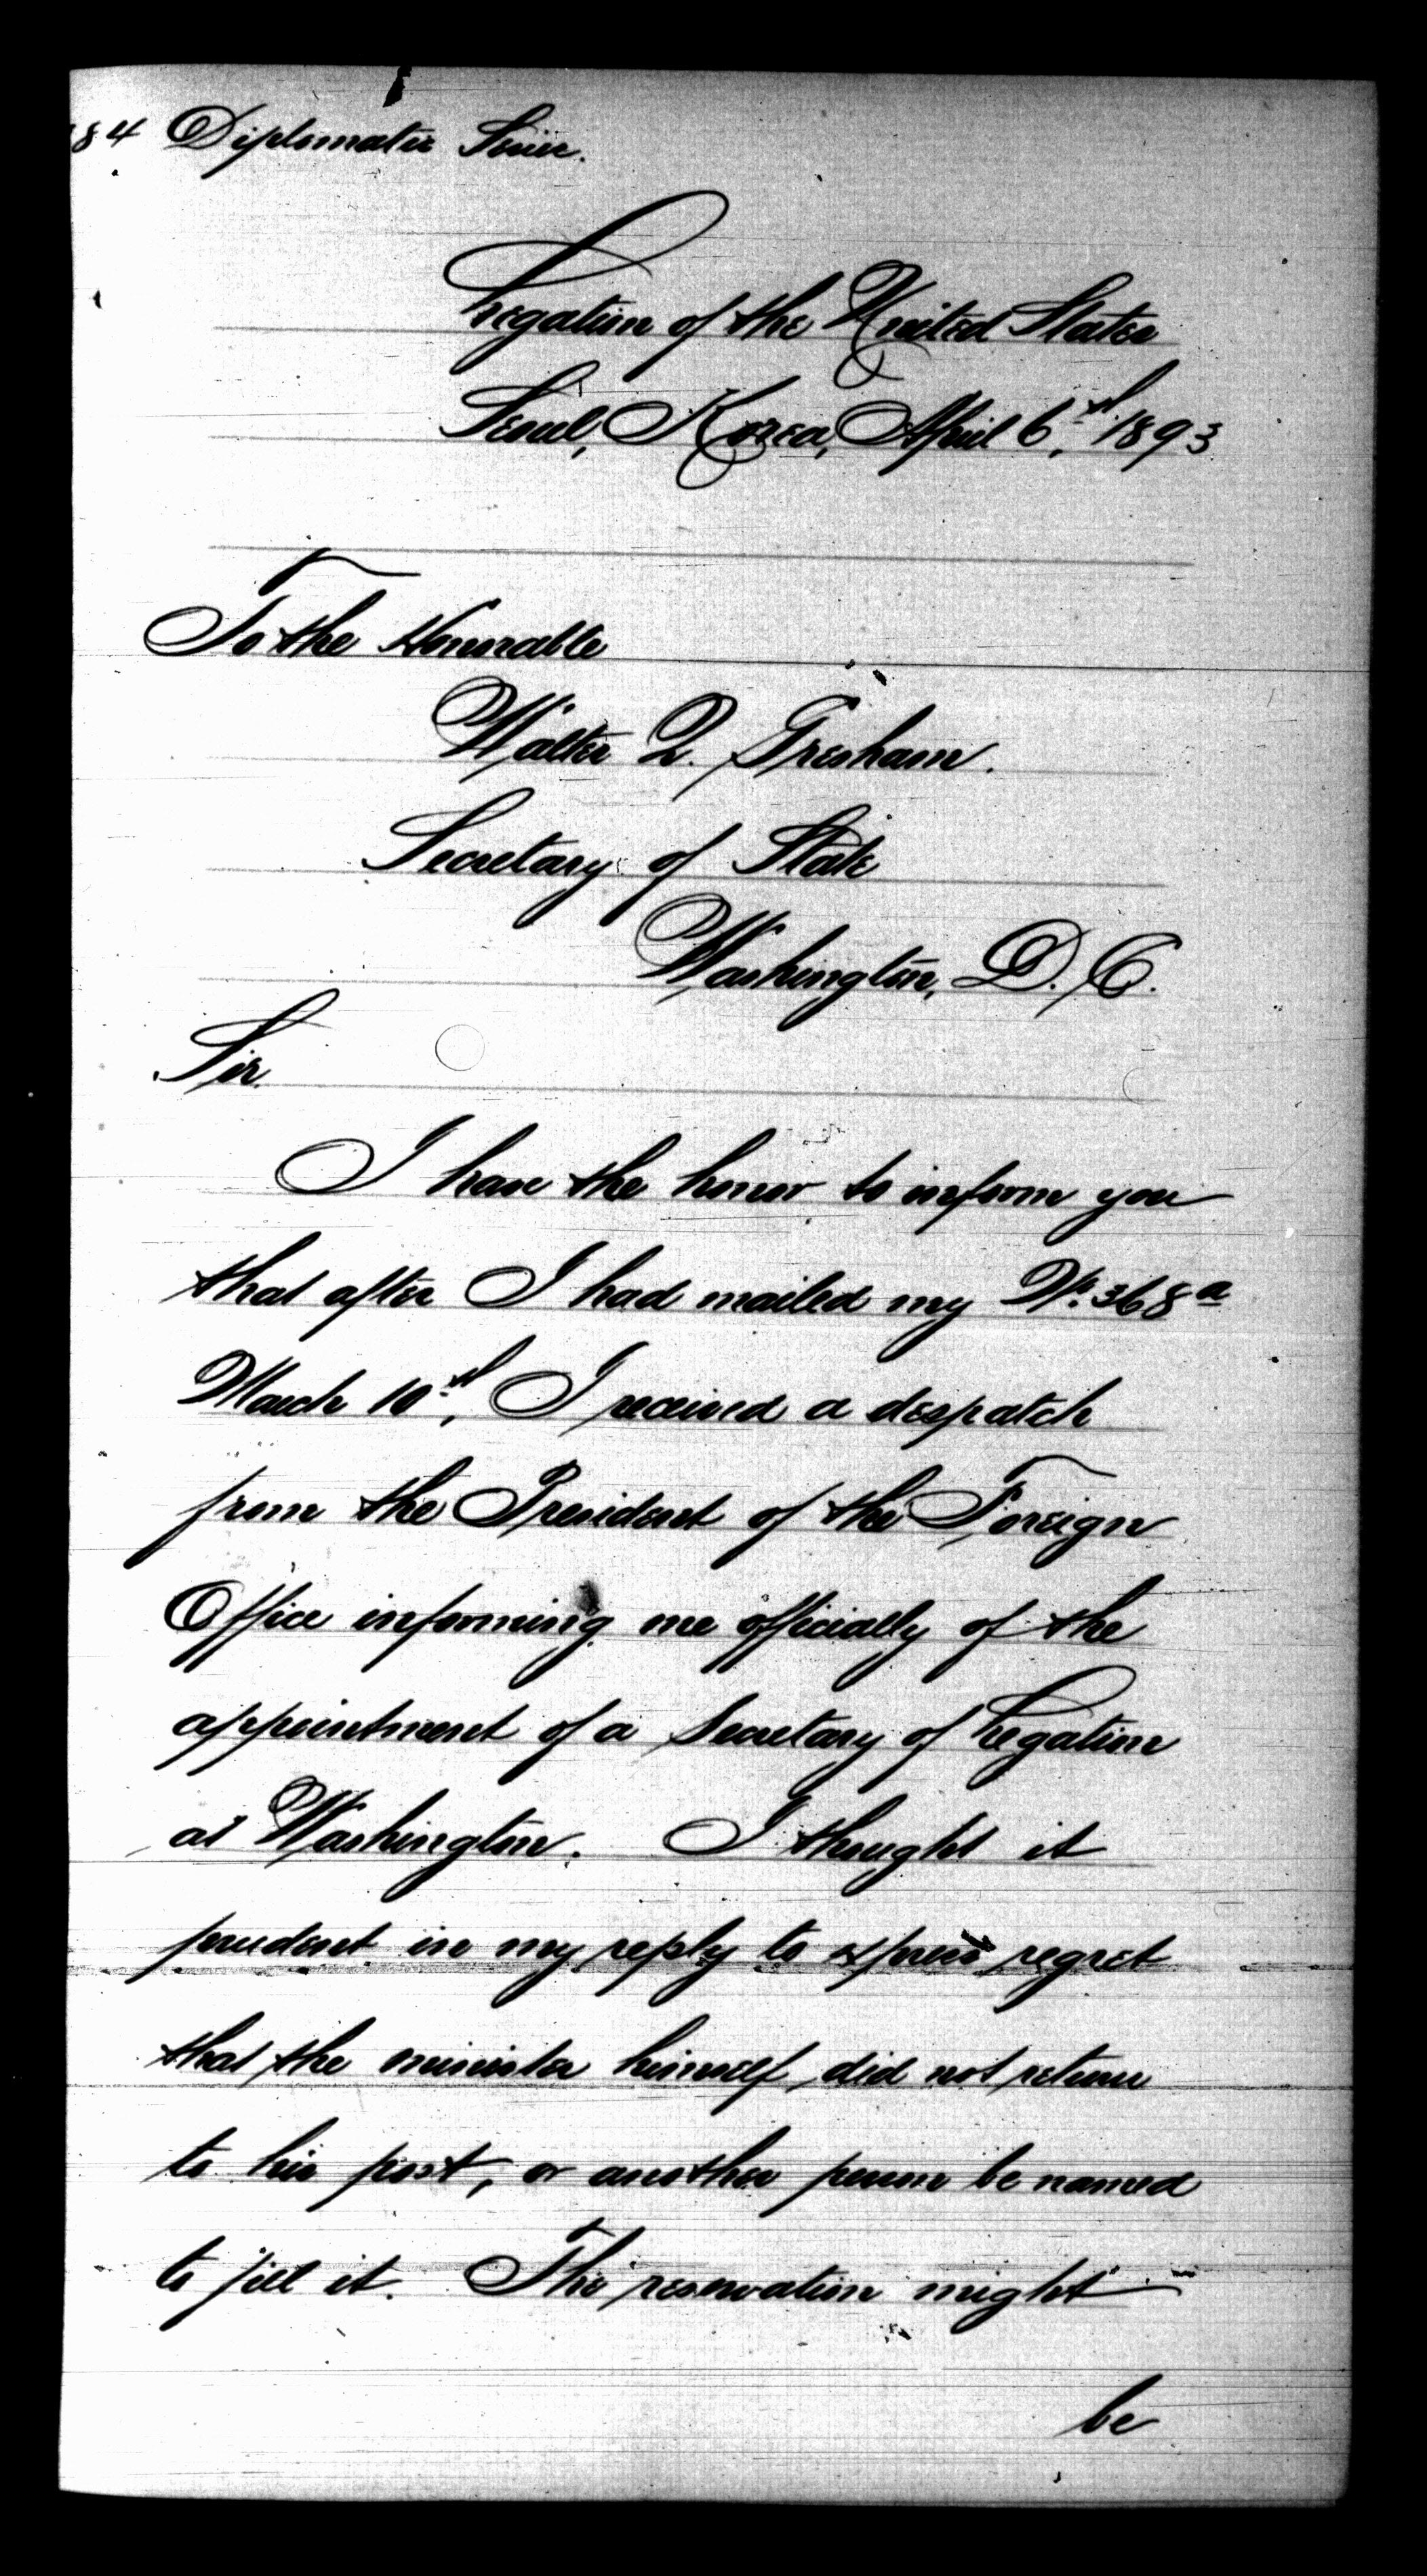 84 Diplomatic Series.
Legation of the United States
Seoul, Korea, April 6th, 1893
To the Honorable
Walter Q. Gresham.
Secretary of State
Washington, D.C.
Sir.
I have the honor to inform you
that after I had mailed my No. 368 a
March 10th, I received a despatch
from the President of the Foreign
Office informing me officially of the
appointment of a Secretary of Legation
at Washington. I thought it
prudent in my reply to express regret
that the minister himself did not return
to his post, or another person be named
to fill it. The reservation might
be